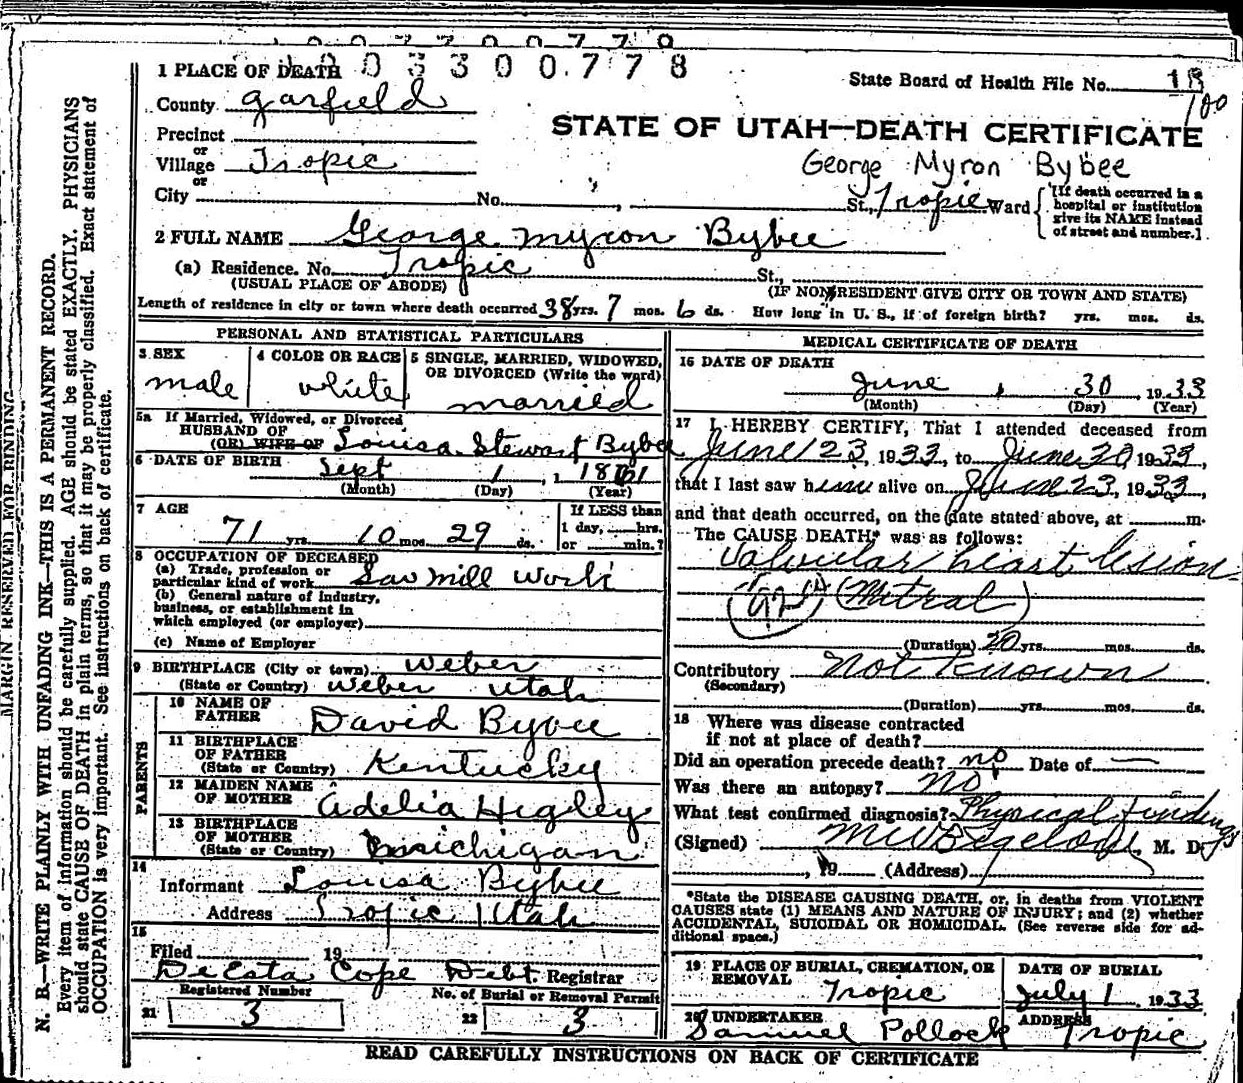 0 0 3 3 0 0 7 7 8
1 PLACE OF DEATH
State Board of Health File No.
County Garfield
STATE OF UTAH—DEATH CERTIFICATE
Precinct
or
Village Tropic
George Myron Bybee
or
City No. , St., Tropic Ward
[If death occurred in a hospital or institution give its NAME instead of street and number.]
2 FULL NAME George Myron Bybee
(a) Residence. No. Tropic St.,
(USUAL PLACE OF ABODE) (IF NON-RESIDENT GIVE CITY OR TOWN AND STATE)
Length of residence in city or town where death occurred 38 yrs. 7 mos. 6 ds. How long in U. S., if of foreign birth? yrs. mos. ds.
PERSONAL AND STATISTICAL PARTICULARS
3 SEX male
4 COLOR OR RACE white
5 SINGLE, MARRIED, WIDOWED, OR DIVORCED (Write the word) married
5a If Married, Widowed, or Divorced
HUSBAND OF
(OR) WIFE OF Louisa Stewart Bybee
6 DATE OF BIRTH Sept 1, 1861
(Month) (Day) (Year)
7 AGE
71 yrs. 10 mos. 29 ds.
If LESS than
1 day, hrs.
or min.?
8 OCCUPATION OF DECEASED
(a) Trade, profession or particular kind of work Saw mill work
(b) General nature of industry, business, or establishment in which employed (or employer)
(c) Name of Employer
9 BIRTHPLACE (City or town) Weber
(State or Country) Weber Utah
PARENTS
10 NAME OF FATHER David Bybee
11 BIRTHPLACE OF FATHER
(State or Country) Kentucky
12 MAIDEN NAME OF MOTHER Adelia Higley
13 BIRTHPLACE OF MOTHER
(State or Country) Michigan
14
Informant Louisa Bybee
Address Tropic Utah
15
Filed 19
DeEsta Cope Debt. Registrar
Registered Number
21 3
No. of Burial or Removal Permit
22 3
MEDICAL CERTIFICATE OF DEATH
16 DATE OF DEATH
June, 30, 1933
(Month) (Day) (Year)
17 I HEREBY CERTIFY, That I attended deceased from
June 23, 1933, to June 30, 1933,
that I last saw him alive on June 23, 1933,
and that death occurred, on the date stated above, at m.
The CAUSE DEATH* was as follows:
Valvular heart lesion
92 (Mitral)
(Duration) 20 yrs. mos. ds.
Contributory Not Known
(Secondary)
(Duration) yrs. mos. ds.
18 Where was disease contracted
if not at place of death?
Did an operation precede death? no Date of —
Was there an autopsy? No
What test confirmed diagnosis? Physical findings
(Signed) M. D.
, 19 (Address)
*State the DISEASE CAUSING DEATH, or, in deaths from VIOLENT CAUSES state (1) MEANS AND NATURE OF INJURY; and (2) whether ACCIDENTAL, SUICIDAL OR HOMICIDAL. (See reverse side for additional space.)
19 PLACE OF BURIAL, CREMATION, OR REMOVAL
Tropic
DATE OF BURIAL
July 1, 1933
20 UNDERTAKER
Samuel Pollock
ADDRESS
Tropic
READ CAREFULLY INSTRUCTIONS ON BACK OF CERTIFICATE
MARGIN RESERVED FOR BINDING
N. B.—WRITE PLAINLY WITH UNFADING INK—THIS IS A PERMANENT RECORD.
Every item of information should be carefully supplied. AGE should be stated EXACTLY. PHYSICIANS
should state CAUSE OF DEATH in plain terms, so that it may be properly classified. Exact statement of
OCCUPATION is very important. See instructions on back of certificate.